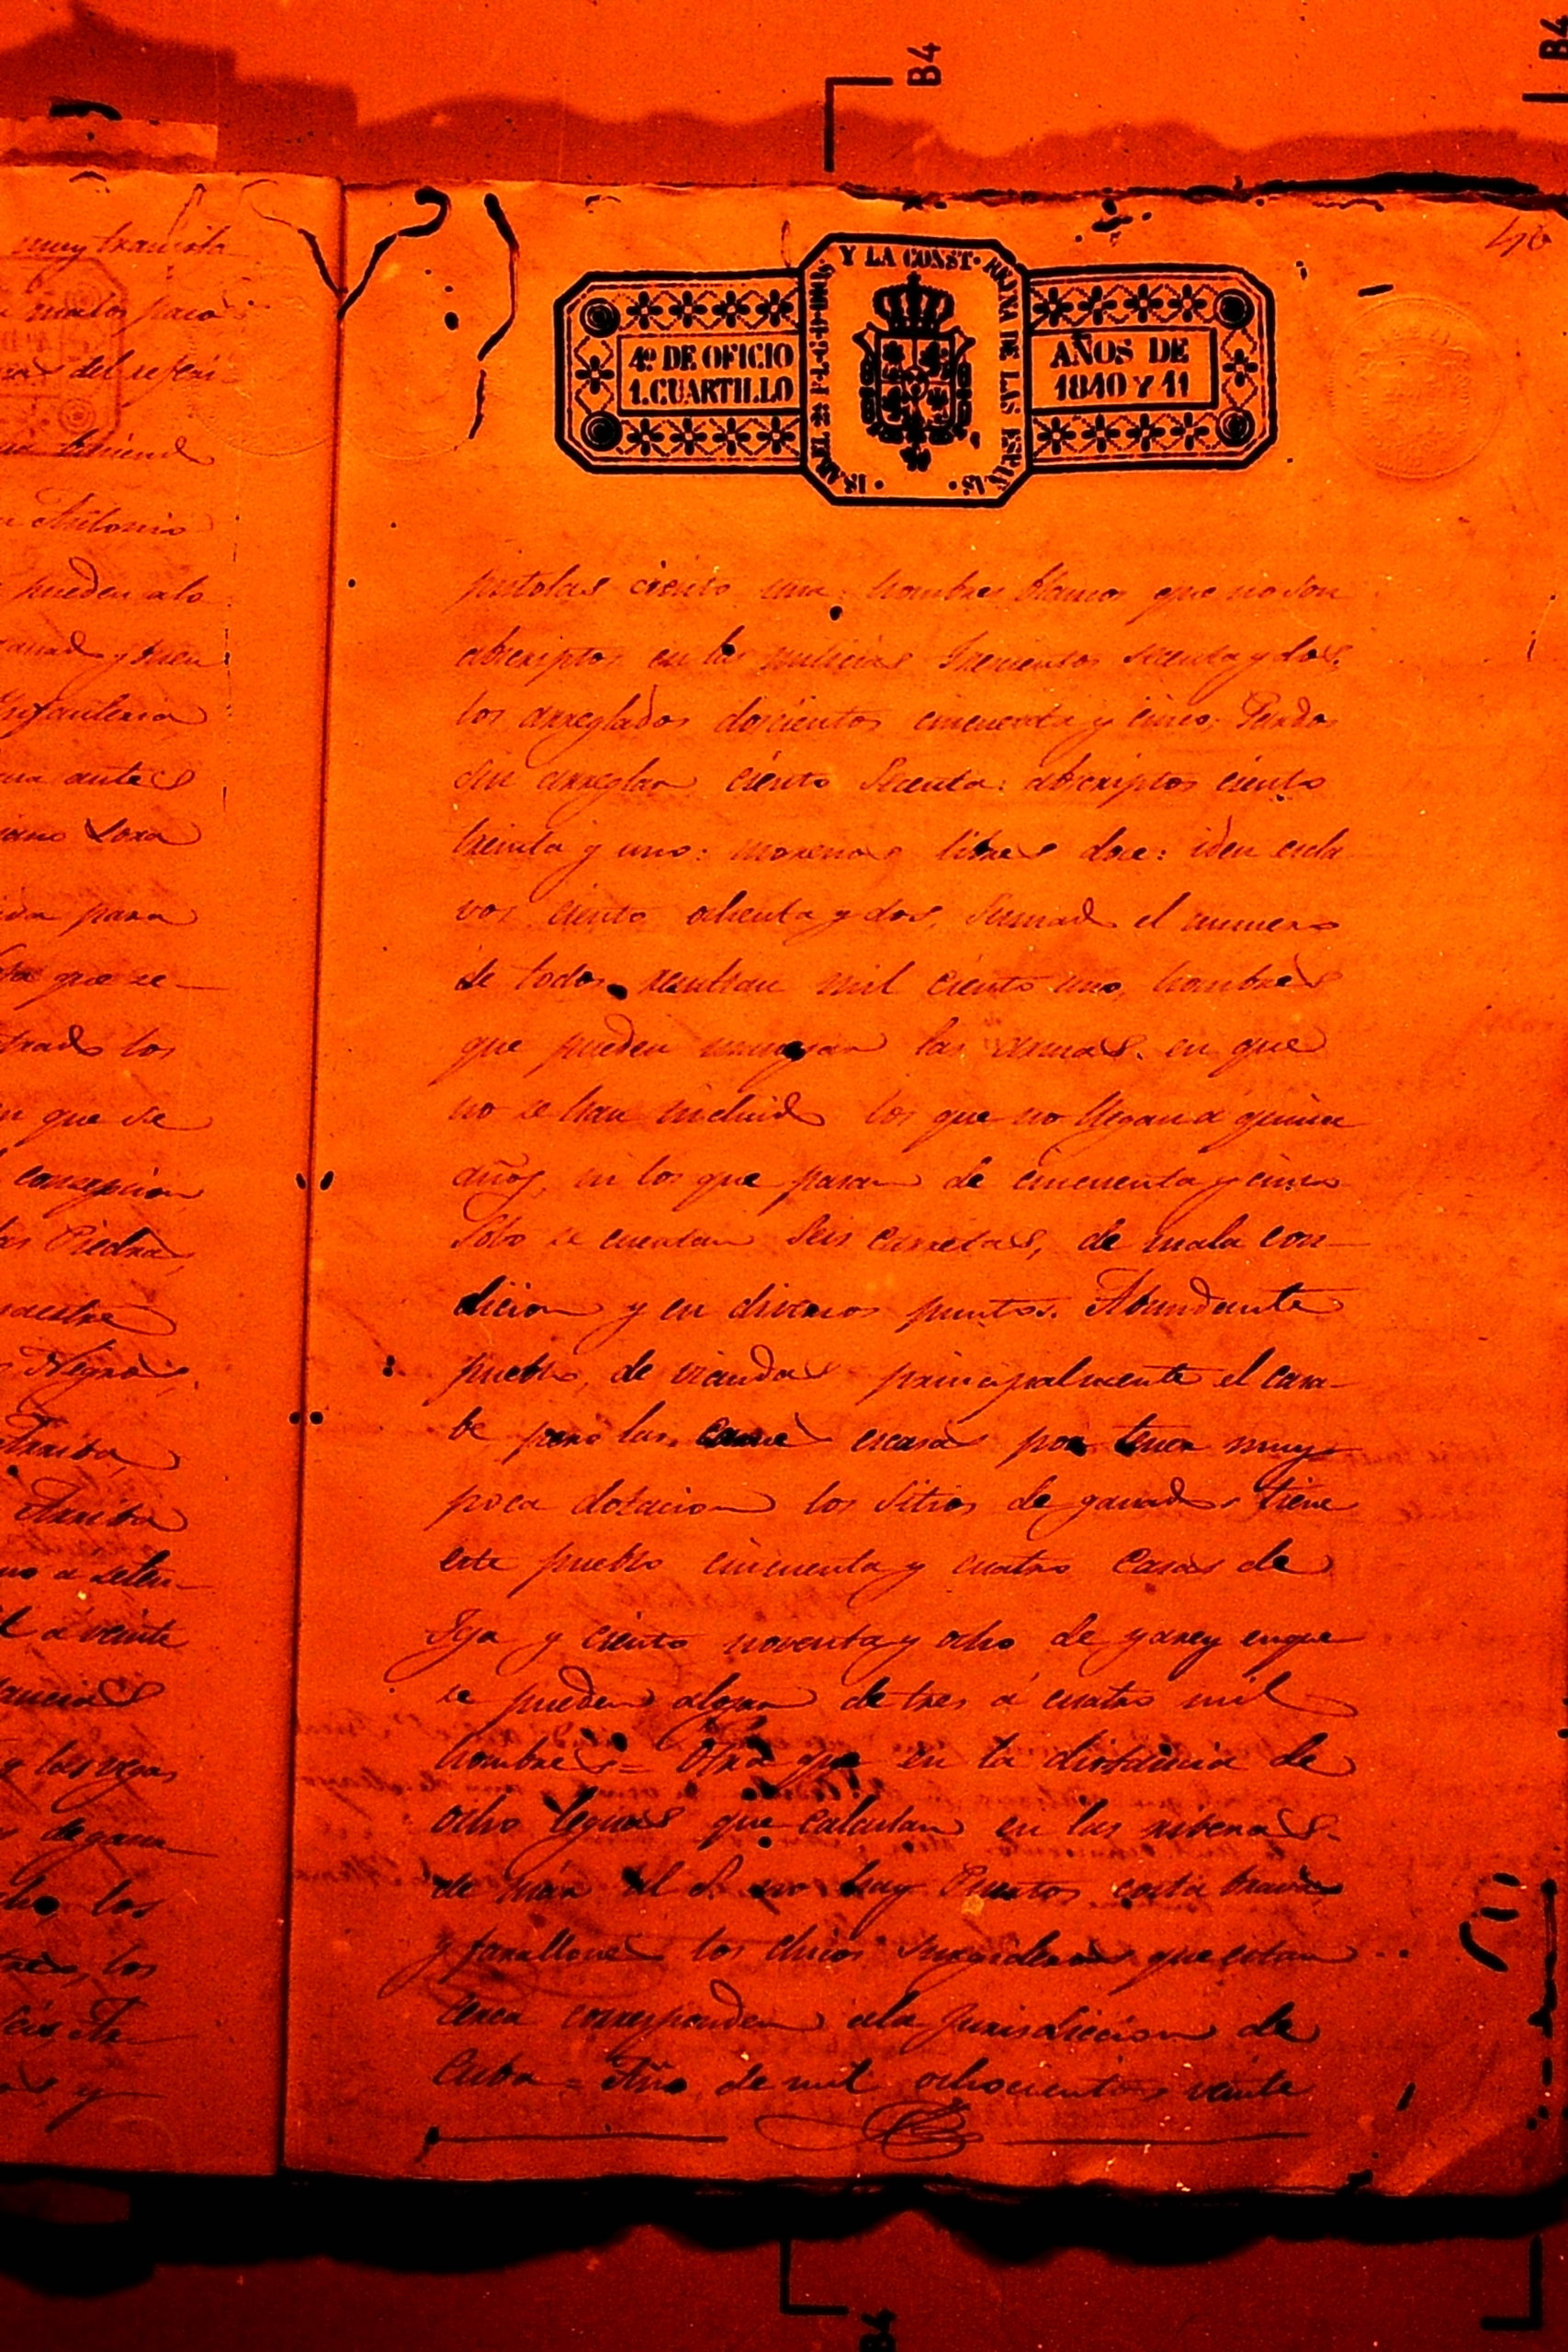 B4
B4
46
ISABEL 2ª P.L.G.D.D. Y LA CONST. REYNA DE LAS ESPAÑAS
4º DE OFICIO
1. CUARTILLO
AÑOS DE
1840 Y 41
muy
del referi
Antonio
pueden alo
Infanteria
antes
Loxa
para
que se
trado los
n que se
concepcion
Piedra,
Negra,
Arriba
a veinte
y las vegas
los
los
y
pistolas ciento una: hombres blancos que no son
abscriptos en las milicias trecientos secenta y dos,
los arreglados docientos cincuenta y cinco. Pardos
sin arreglar ciento secenta: abscriptos ciento
treinta y uno: morenos libres doce: iden escla
vos ciento ochenta y dos, sumado el numero
de todos resultan mil ciento uno, hombres
que pueden manejar las armas, en que
no se han incluido los que no llegan a quince
años, ni los que pasan de cincuenta y cinco
Solo se cuentan seis carretas, de mala con-
dicion y en diversos puntos. Abundante
pueblo, de viandas principalmente el casa-
be pero las carne escasa por tener muy
poca dotacion los sitios de ganado, tiene
este pueblo cincuenta y cuatro casas de
Teja y ciento noventa y ocho de yarey en que
se pueden alojar de tres á cuatro mil
hombres = Otra que en la distancia de
ocho leguas que calculan en las riberas
de mar al S. no hay Puertos costa brava
y farallones los chicos surgideros que estan
cerca corresponden a la Jurisdiccion de
Cuba = Año de mil ochocientos veinte
B4